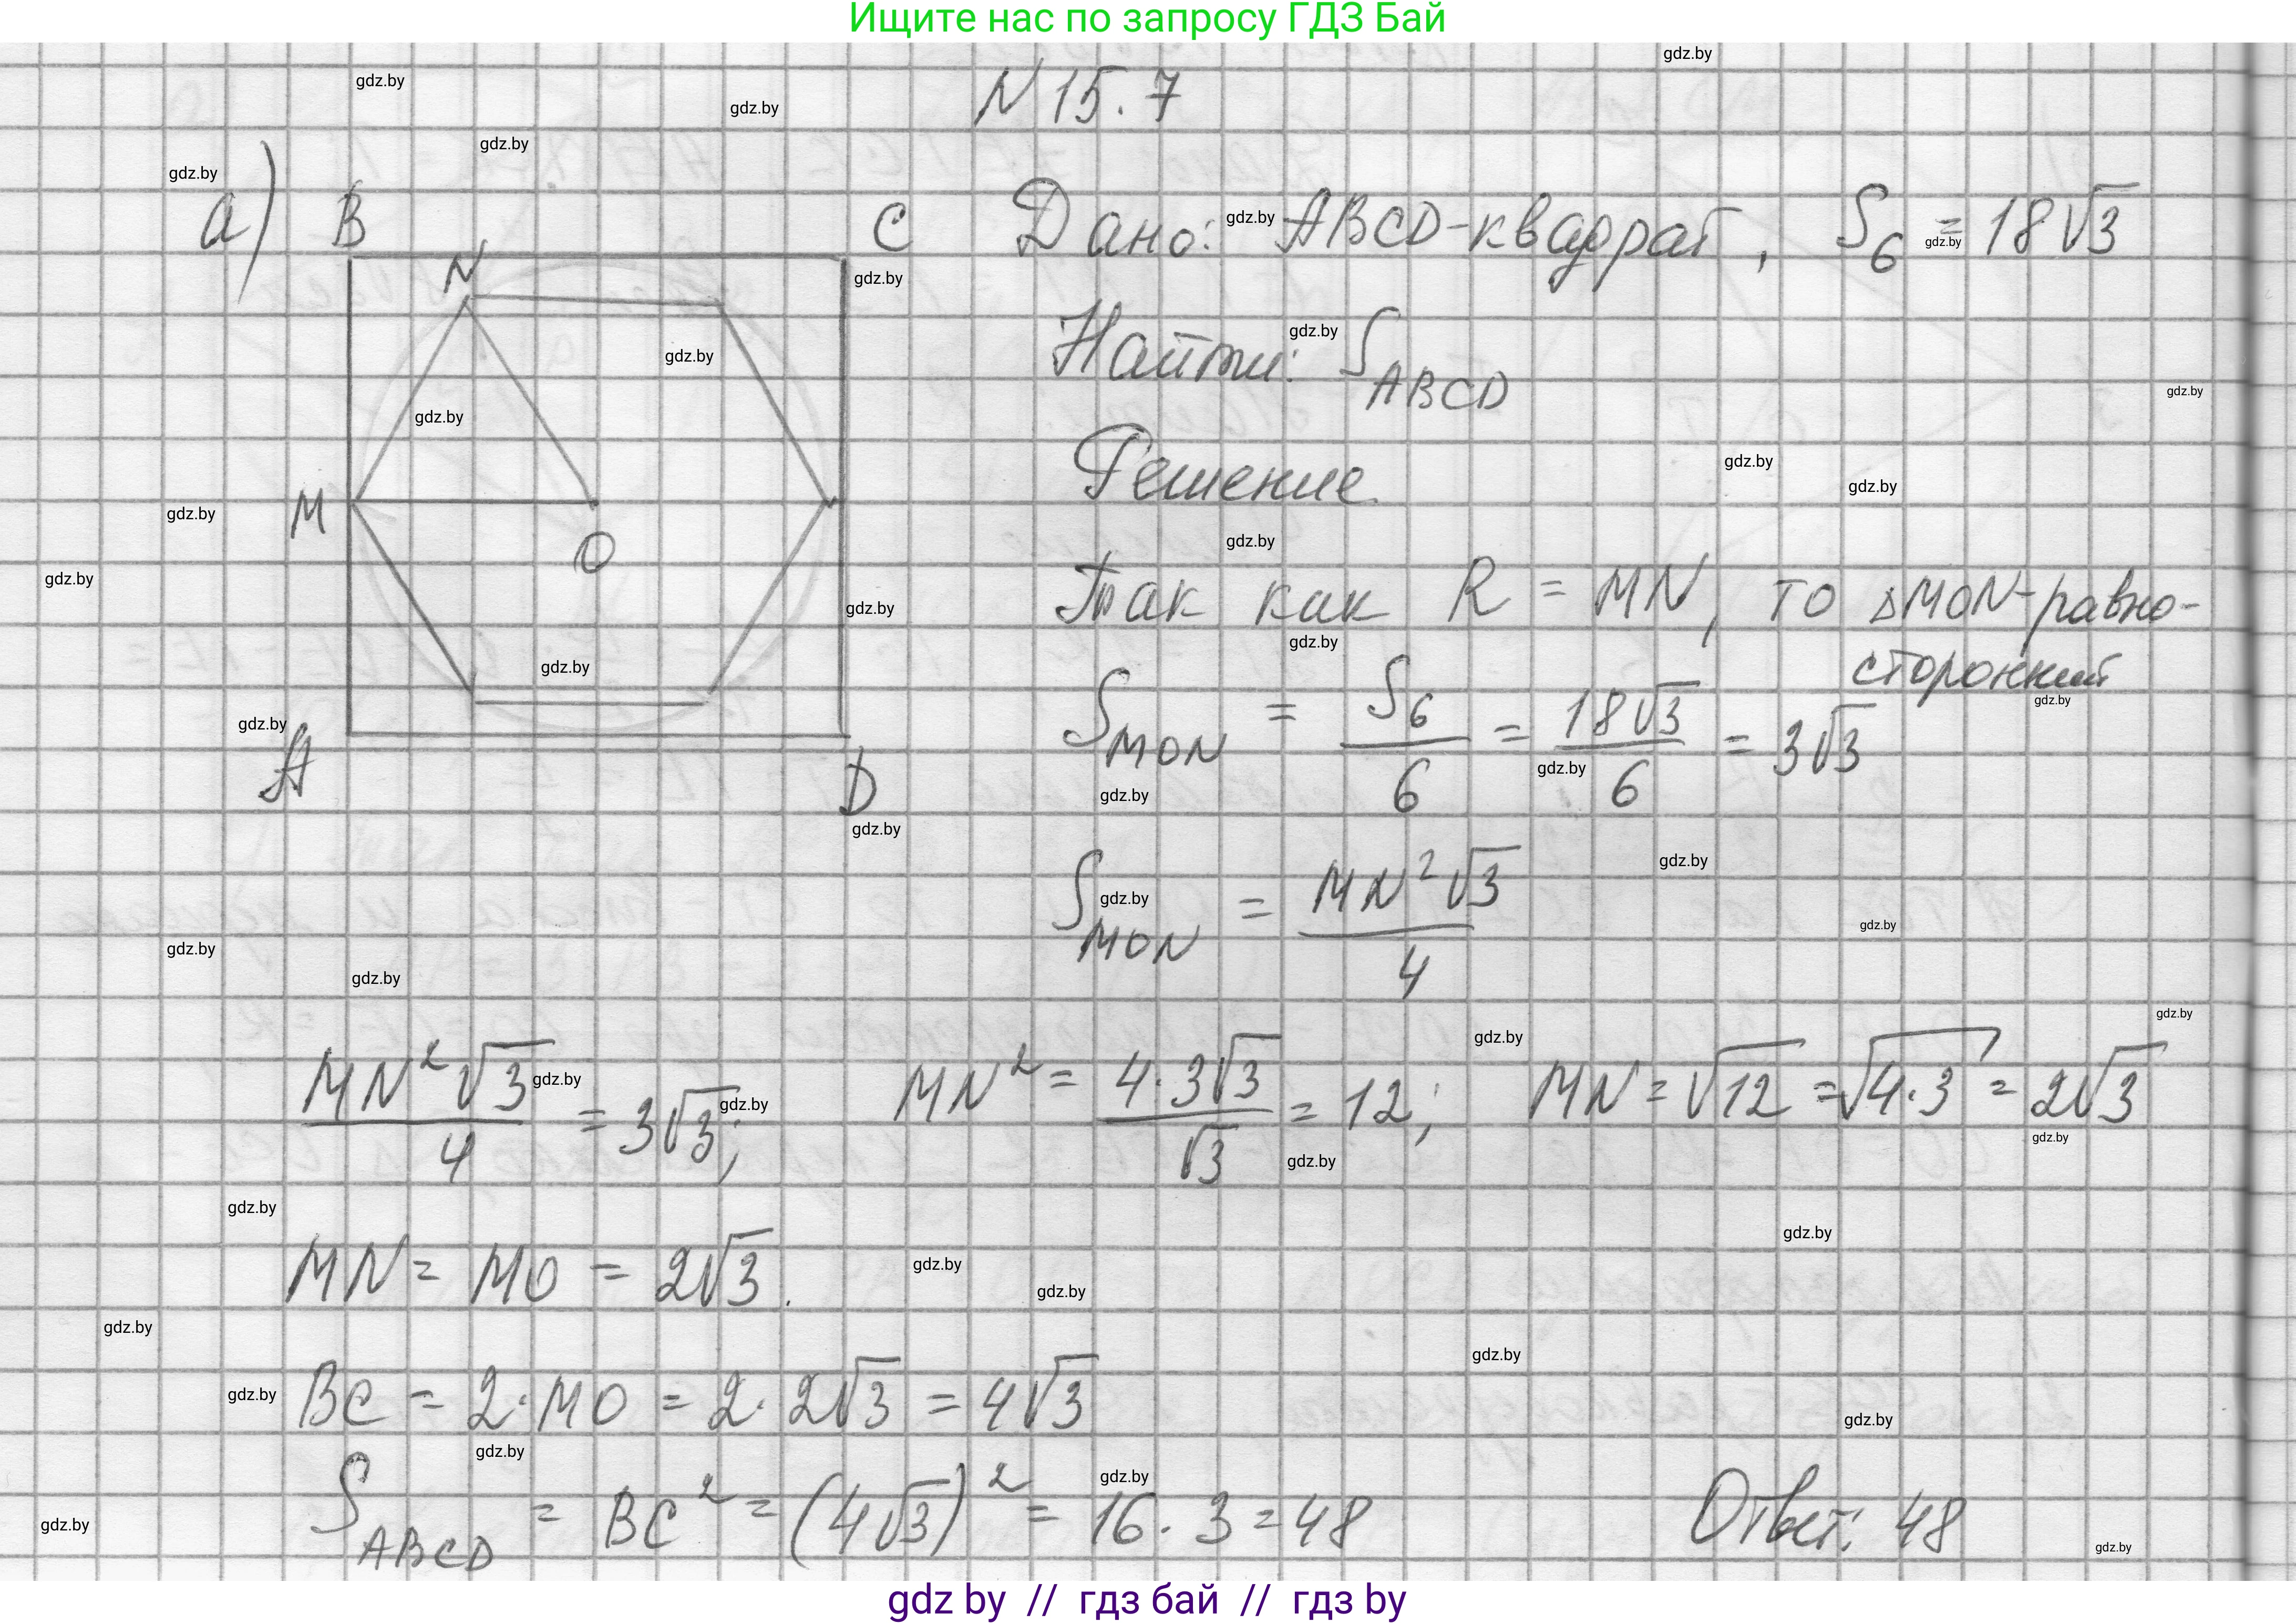 Ищите нас по запросу ГДЗ Бай
N 15.7
а) B C Дано: ABCD-квадрат, S₆ = 18√3
N
Найти: S_ABCD
Решение
M O
Так как R = MN, то △MON-равно-
сторонний
S_MON = S₆/6 = 18√3/6 = 3√3
A D
S_MON = MN²√3/4
MN²√3/4 = 3√3; MN² = 4·3√3/√3 = 12; MN = √12 = √4·3 = 2√3
MN = MO = 2√3.
BC = 2·MO = 2·2√3 = 4√3
S_ABCD = BC² = (4√3)² = 16·3 = 48 Ответ: 48
gdz by // гдз бай // гдз by
gdz.by